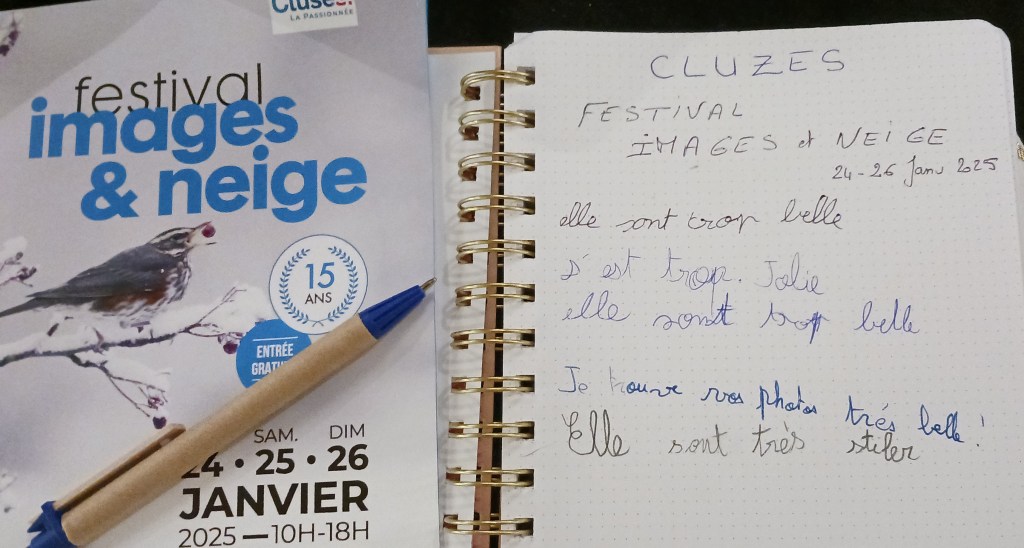 Cluses!
LA PASSIONNÉE
festival
images
& neige
15
ANS
ENTRÉE
SAM. DIM
24 • 25 • 26
JANVIER
2025 — 10H-18H
CLUZES
FESTIVAL
IMAGES et NEIGE
24-26 Janv 2025
elle sont trop belle
s'est trop. Jolie
elle sont trop belle
Je trouve vos photos très belle !
Elle sont très stiler